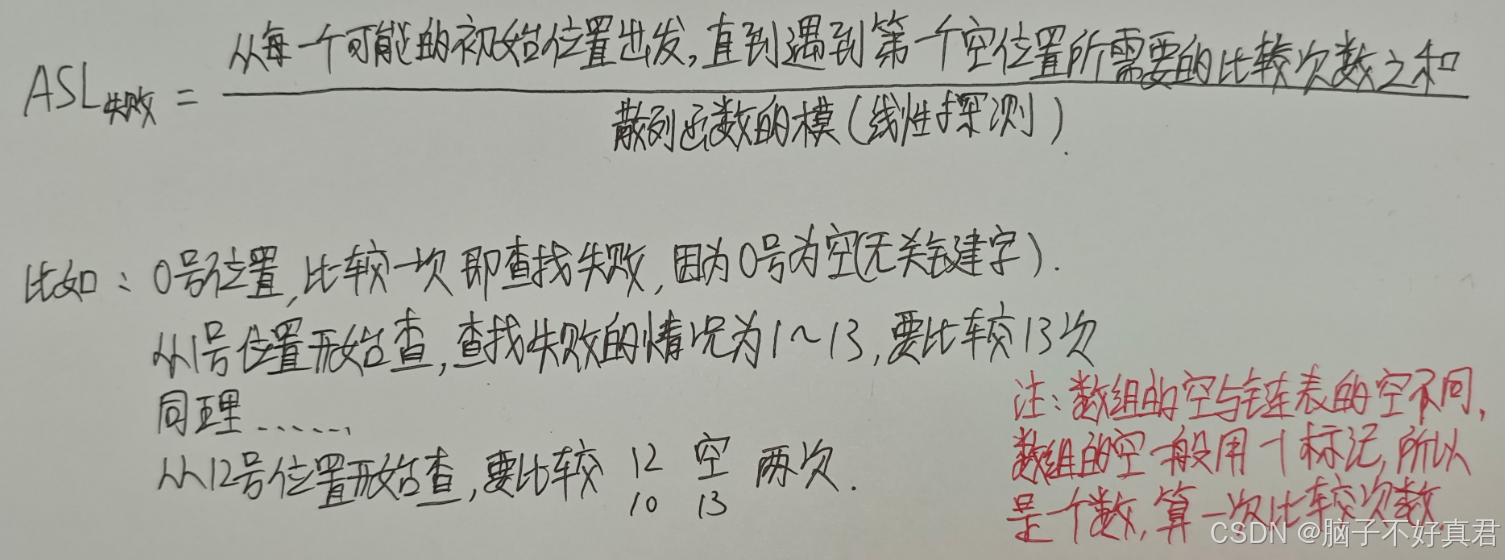 从每一个可能的初始位置出发,直到遇到第一个空位置所需要的比较次数之和
ASL失败 =
散列函数的模(线性探测)
比如: 0号位置,比较一次即查找失败,因为0号为空(无关键字).
从1号位置开始查,查找失败的情况为1~13,要比较13次
同理......
从12号位置开始查,要比较 12 空 两次.
10 13
注:数组的空与链表的空不同,
数组的空一般用个标记,所以
是个数,算一次比较次数.
CSDN @脑子不好真君